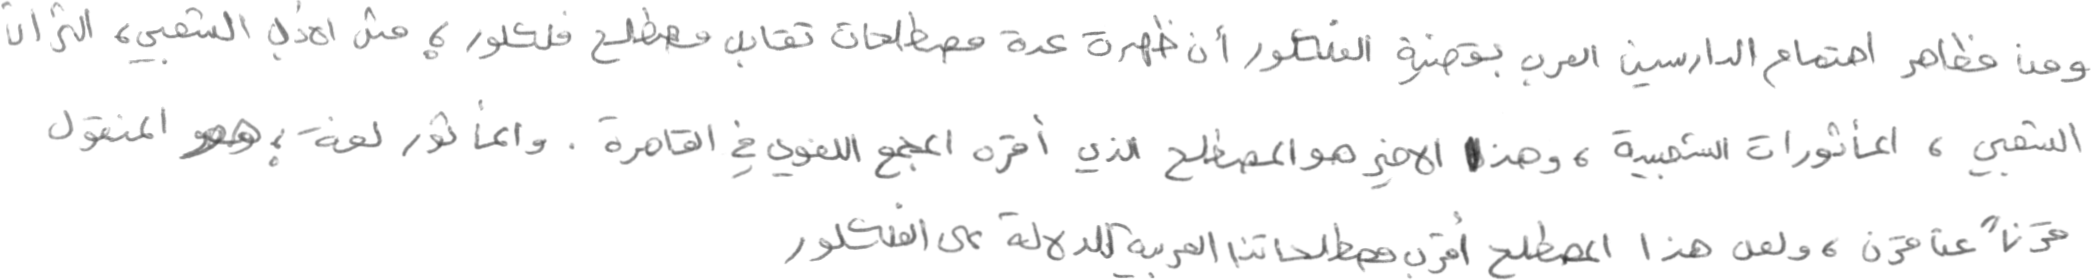 ومن مظاهر اهتمام الدارسين العرب بقضية الفلكلور أن ظهرة عدة مصطلحات تقابل مصطلح فلكلور ، مثل الادب الشعبي، التراث
الشعبي ، المأثورات الشعبية ، وهذا الاخير هو المصطلح الذي أقره المجمع اللغوي في القاهرة . والمأثور لغة ، هو المنقول
قرناً عن قرن ، ولعل هذا المصطلح أقرب مصطلحاتنا العربية للدلالة على الفلكلور